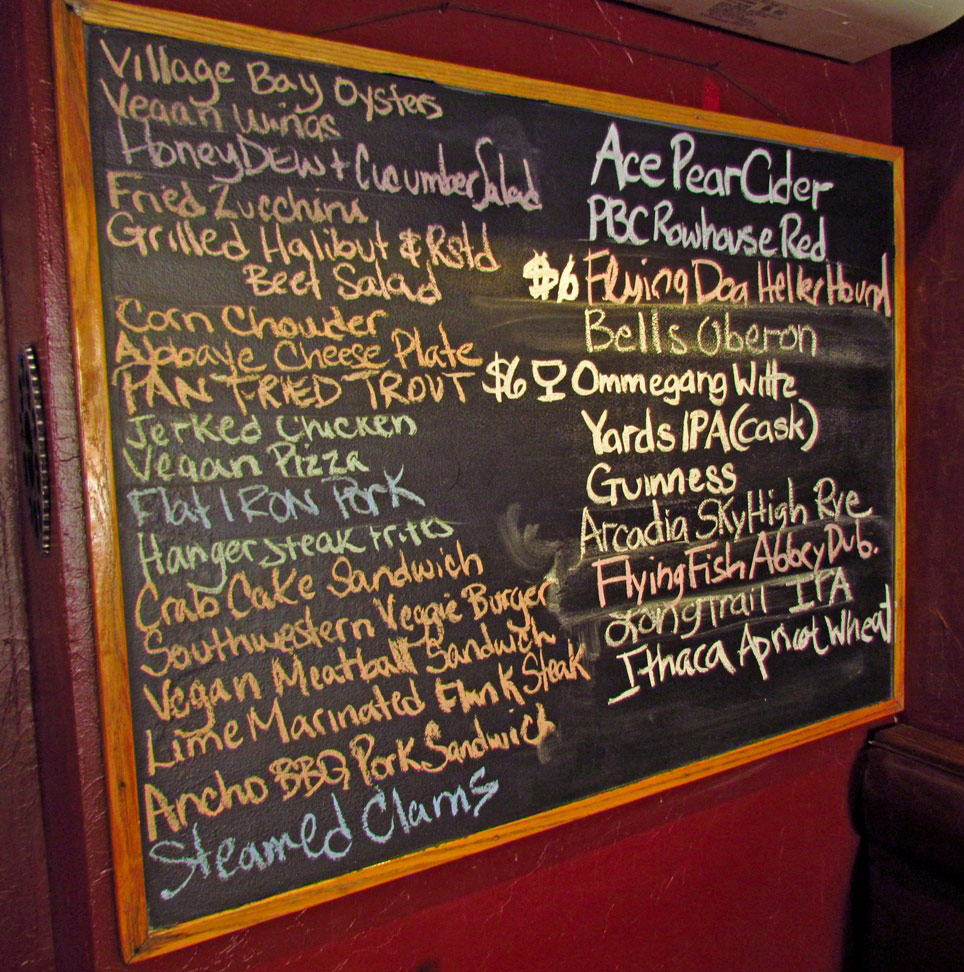 Village Bay Oysters
Vegan Wings
HoneyDew + Cucumber Salad
Fried Zucchini
Grilled Halibut & Rstd
Beet Salad
Corn Chowder
Abbaye Cheese Plate
PAN FRIED TROUT
Jerked Chicken
Vegan Pizza
Flat IRON Pork
Hanger steak frites
Crab Cake Sandwich
Southwestern Veggie Burger
Vegan Meatball Sandwich
Lime Marinated Flank Steak
Ancho BBQ Pork Sandwich
Steamed Clams
Ace Pear Cider
PBC Rowhouse Red
$6 Flying Dog Heller Hound
Bells Oberon
$6 Ommegang Witte
Yards IPA (cask)
Guinness
Arcadia SkyHigh Rye
Flying Fish Abbey Dub.
Long Trail IPA
Ithaca Apricot Wheat